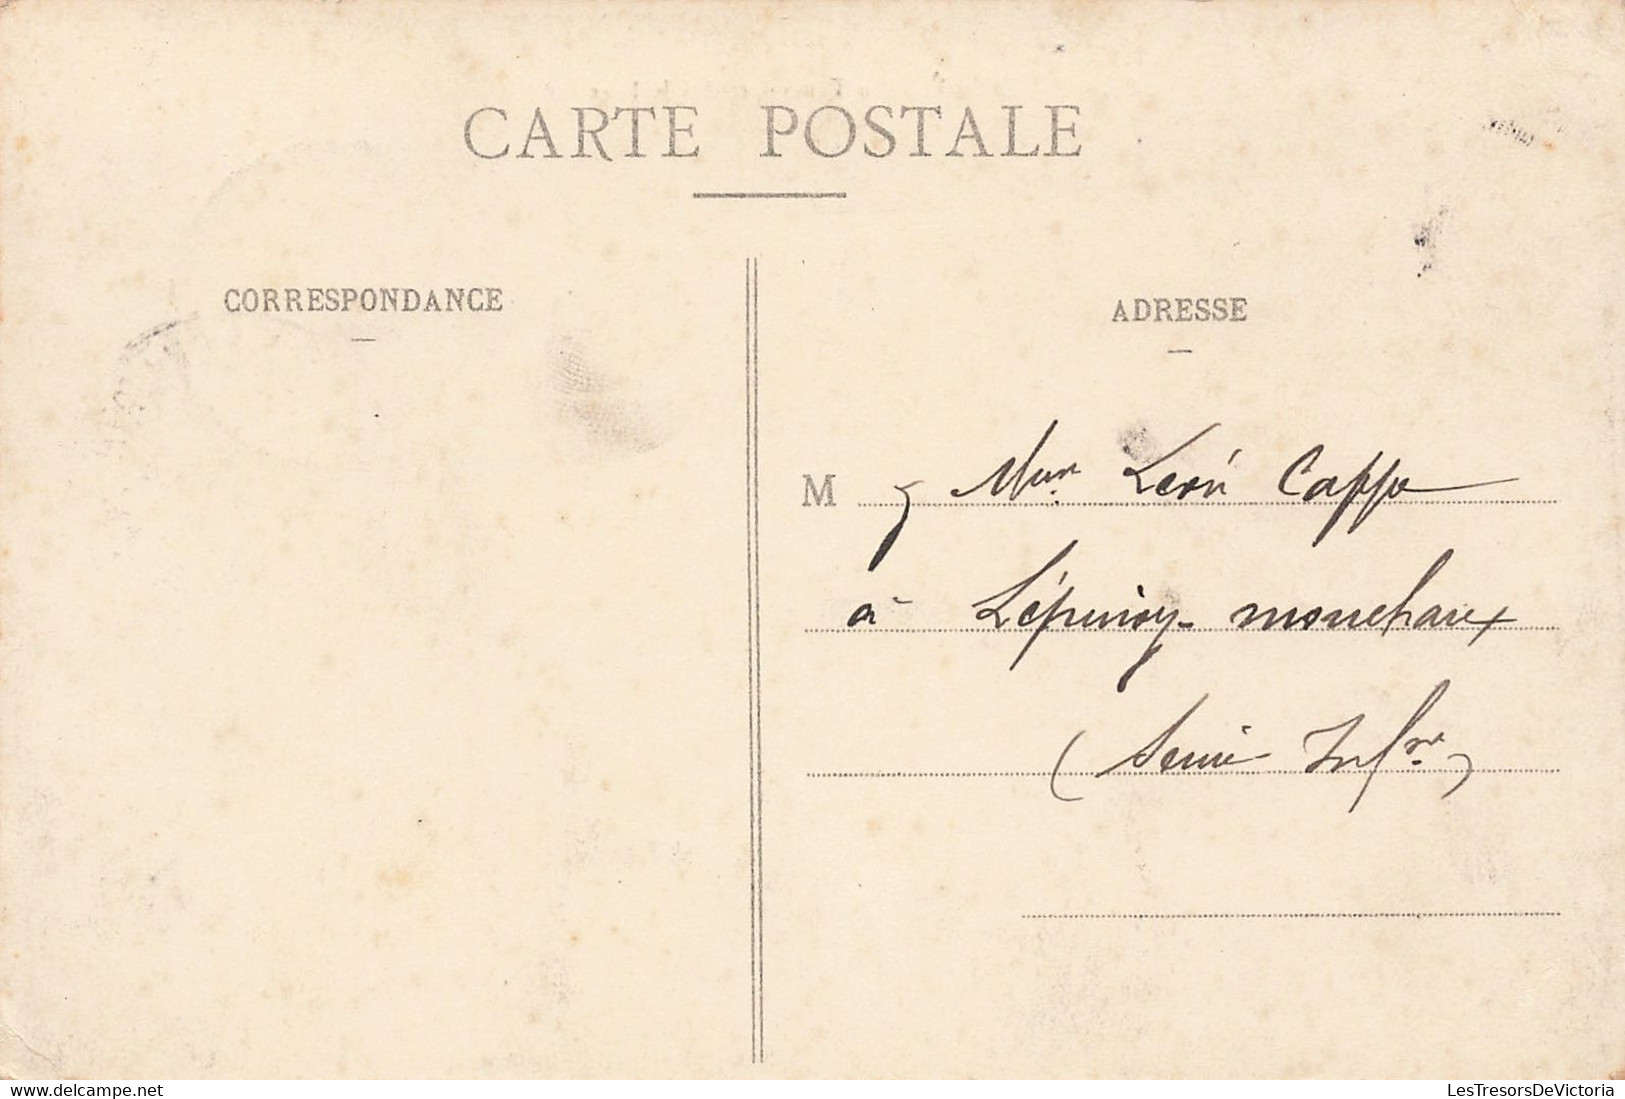 CARTE POSTALE
CORRESPONDANCE
ADRESSE
M Mur Léon Cappe
à Lépinoy-mouchaux
(Seine Infre)
delcampe.net
LesTresorsDeVictoria